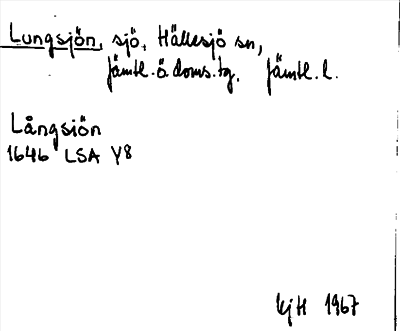 Lungsjön, sjö, Hällesjö sn,
Jämtl. ö. doms.tg. Jämtl. l.
Långsjön
1646 LSA Y8
KjH 1967